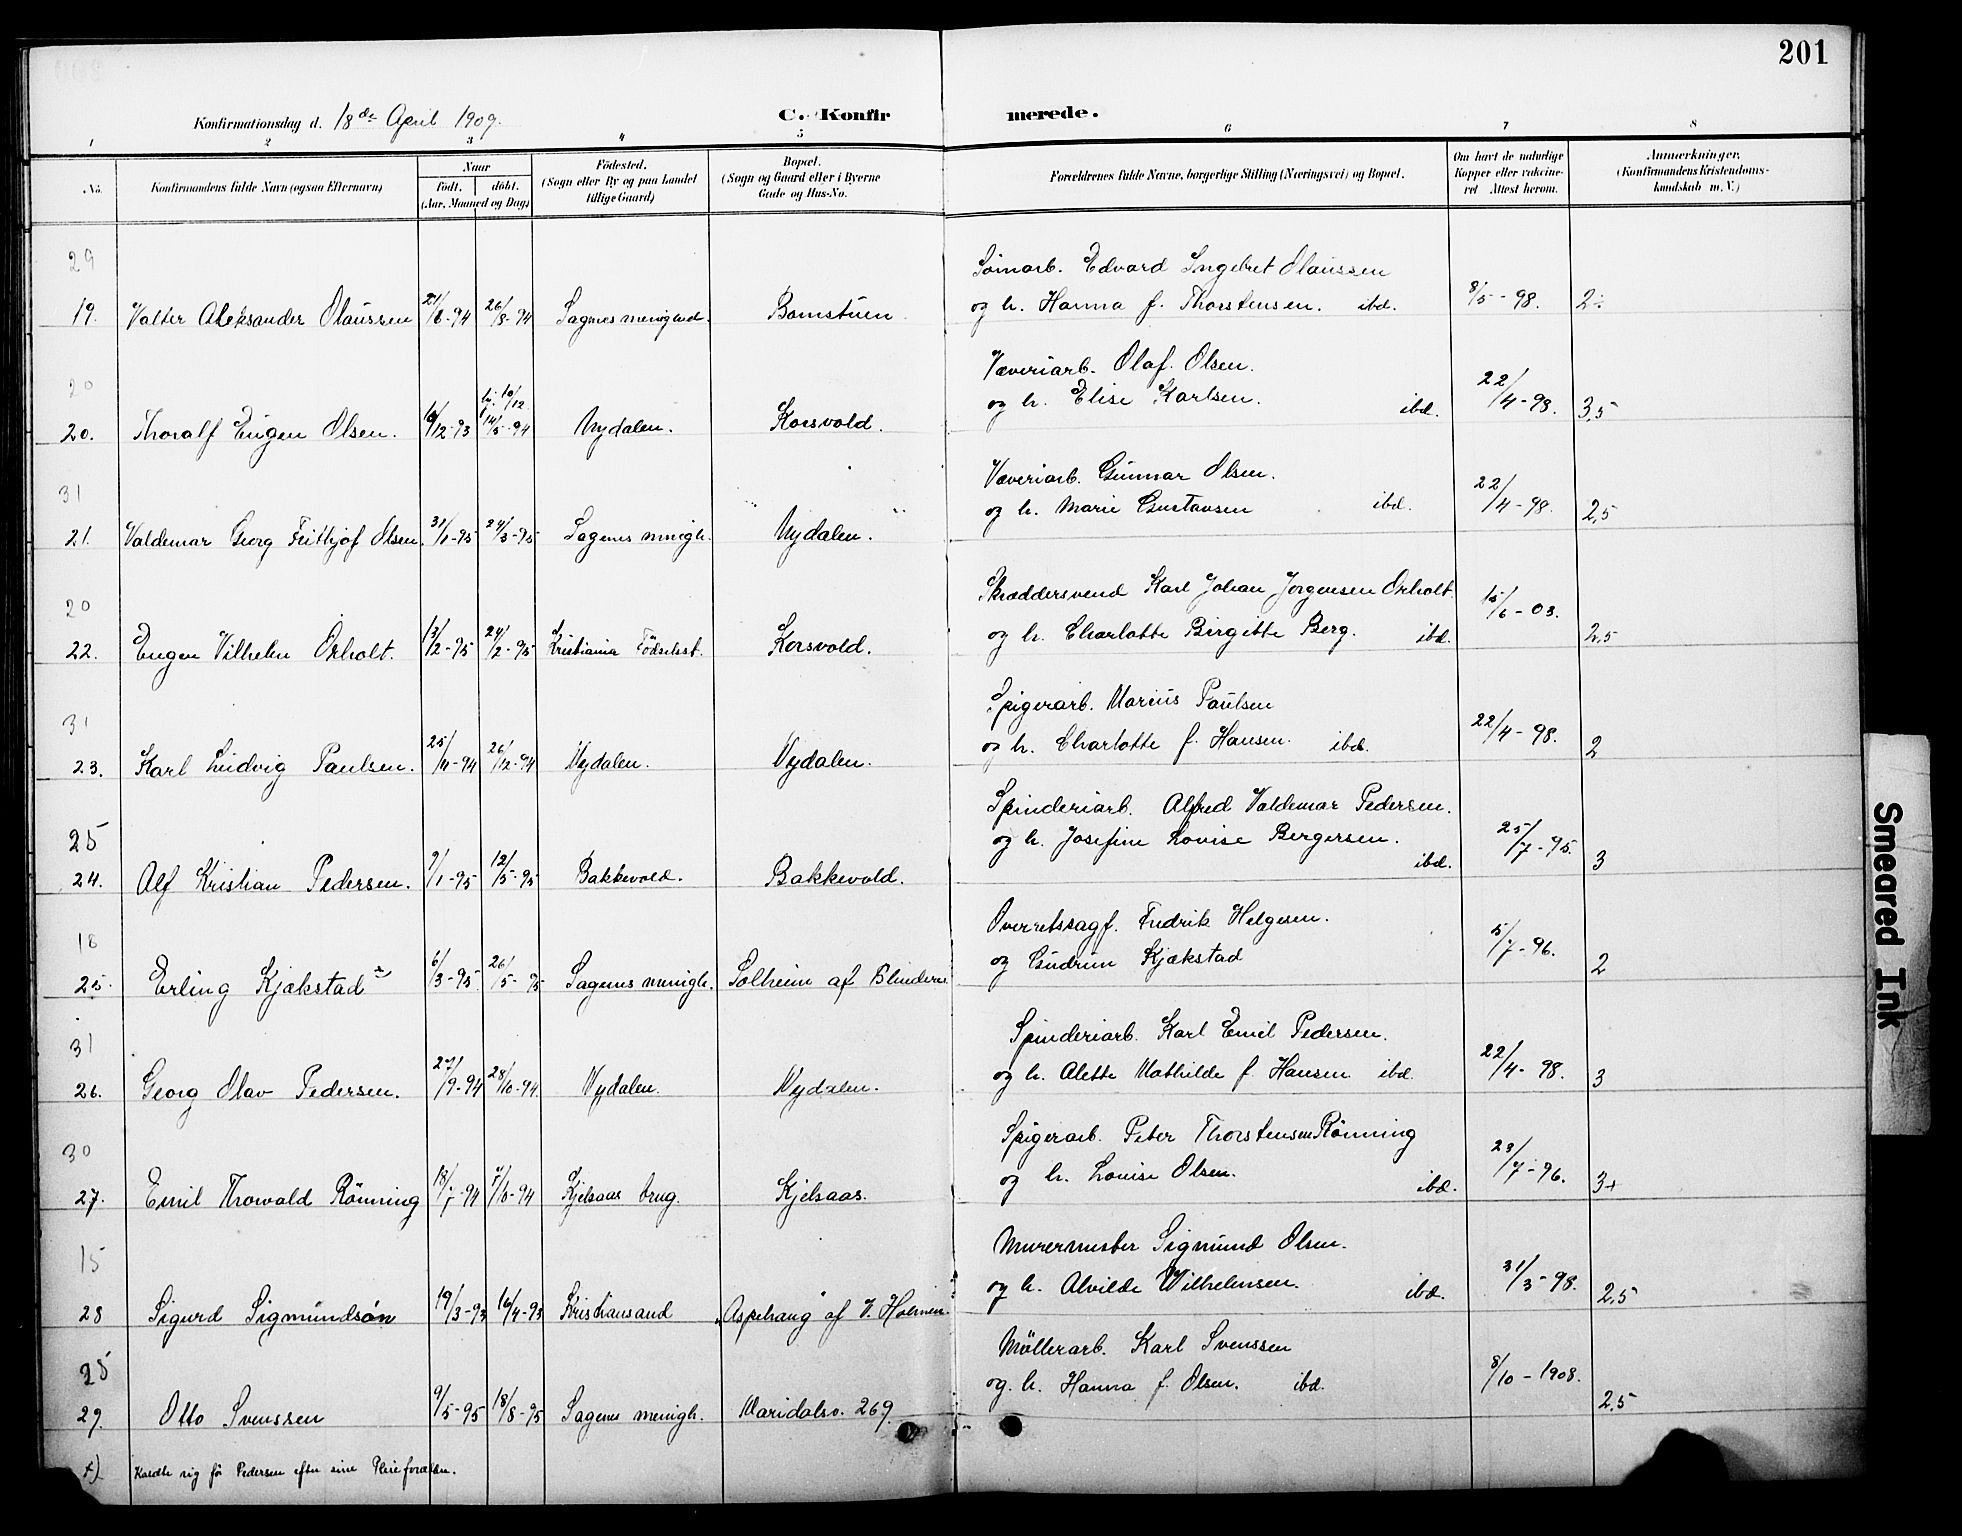 201
Konfirmationsdag d. 18de April 1909.
C. Konfirmerede.
1 2 3 4 5 6 7 8
No. Konfirmandens fulde Navn (ogsaa Efternavn) Naar födt. döbt. (Aar, Maaned og Dag) Födested. (Sogn eller By og paa Landet tillige Gaard) Bopæl. (Sogn og Gaard eller i Byerne Gade og Hus-No. Forældrenes fulde Navne, borgerlige Stilling (Næringsvei) og Bopæl. Om havt de naturlige Kopper eller vakcineret Attest herom. Anmærkninger. (Konfirmandens Kristendomskundskab m. V.)
29
Sömarb. Edvard Ingebret Olaussen
19. Valter Aleksander Olaussen 21/6-94 26/8-94 Sagenes menighed. Bomstuen og h. Hanna f. Thorstensen. ibd. 8/5-98. 2÷
20
Væveriarb. Olaf Olsen.
20. Thoralf Eugen Olsen. 6/12-93 hj. 10/12 14/5-94 Nydalen. Korsvold. og h. Elise Karlsen. ibd. 22/4-98. 3,5
31
Væveriarb. Gunnar Olsen.
21. Valdemar Georg Fritthjof Olsen. 31/1-95 24/3-95 Sagenes menigh. Nydalen. og h. Marie Gustavsen ibd. 22/4-98. 2,5
20
Skræddersvend Karl Johan Jørgensen Orholt.
22. Eugen Vilhelm Orholt. 13/2-95 24/2-95 Kristiania Födselsst. Korsvold. og h. Charlotte Birgitte Berg. ibd. 15/6-03. 2,5
31
Spigerarb. Marius Paulsen
23. Karl Ludvig Paulsen. 25/11-94 26/12-94 Nydalen. Nydalen. og h. Charlotte f. Hansen. ibd. 22/4-98. 2
25
Spinderiarb. Alfred Valdemar Pedersen.
24. Alf Kristian Pedersen. 9/1-95 12/5-95 Bakkevold. Bakkevold. og h. Josefine Lovise Bergersen. ibd. 25/7-95. 3
18
Overretssagf. Fredrik Helgesen.
25. Erling Kjækstad x 6/3-95. 26/5-95 Sagenes menigh. Solheim af Blindern og Gudrun Kjækstad 5/7-96. 2
31
Spinderiarb. Karl Emil Pedersen.
26. Georg Olav Pedersen. 27/9-94 28/10-94. Nydalen. Nydalen. og h. Alette Mathilde f. Hansen ibd. 22/4-98. 3
30
Spigerarb. Peter Thorstensen Rönning
27. Emil Thorvald Rönning 18/7-94 7/10-94 Kjelsaas brug. Kjelsaas. og h. Lovise Olsen. ibd. 23/7-96. 3+
15
Murermester Sigmund Olsen.
28 Sigurd Sigmundsön 19/3-93 16/4-93 Kristiansand "Aspehaug" af V. Holmen. og h. Alvilde Wilhelmsen. ibd. 31/3-98. 2,5
25
Möllerarb. Karl Svenssen
29. Otto Svenssen 9/5-95 18/8-95 Sagenes menigh. Maridalsv. 269. og h. Hanna f. Olsen. ibd. 8/10-1908. 2,5
x) Kaldte sig för Pedersen efter sine Pleieforældre.
Smeared Ink